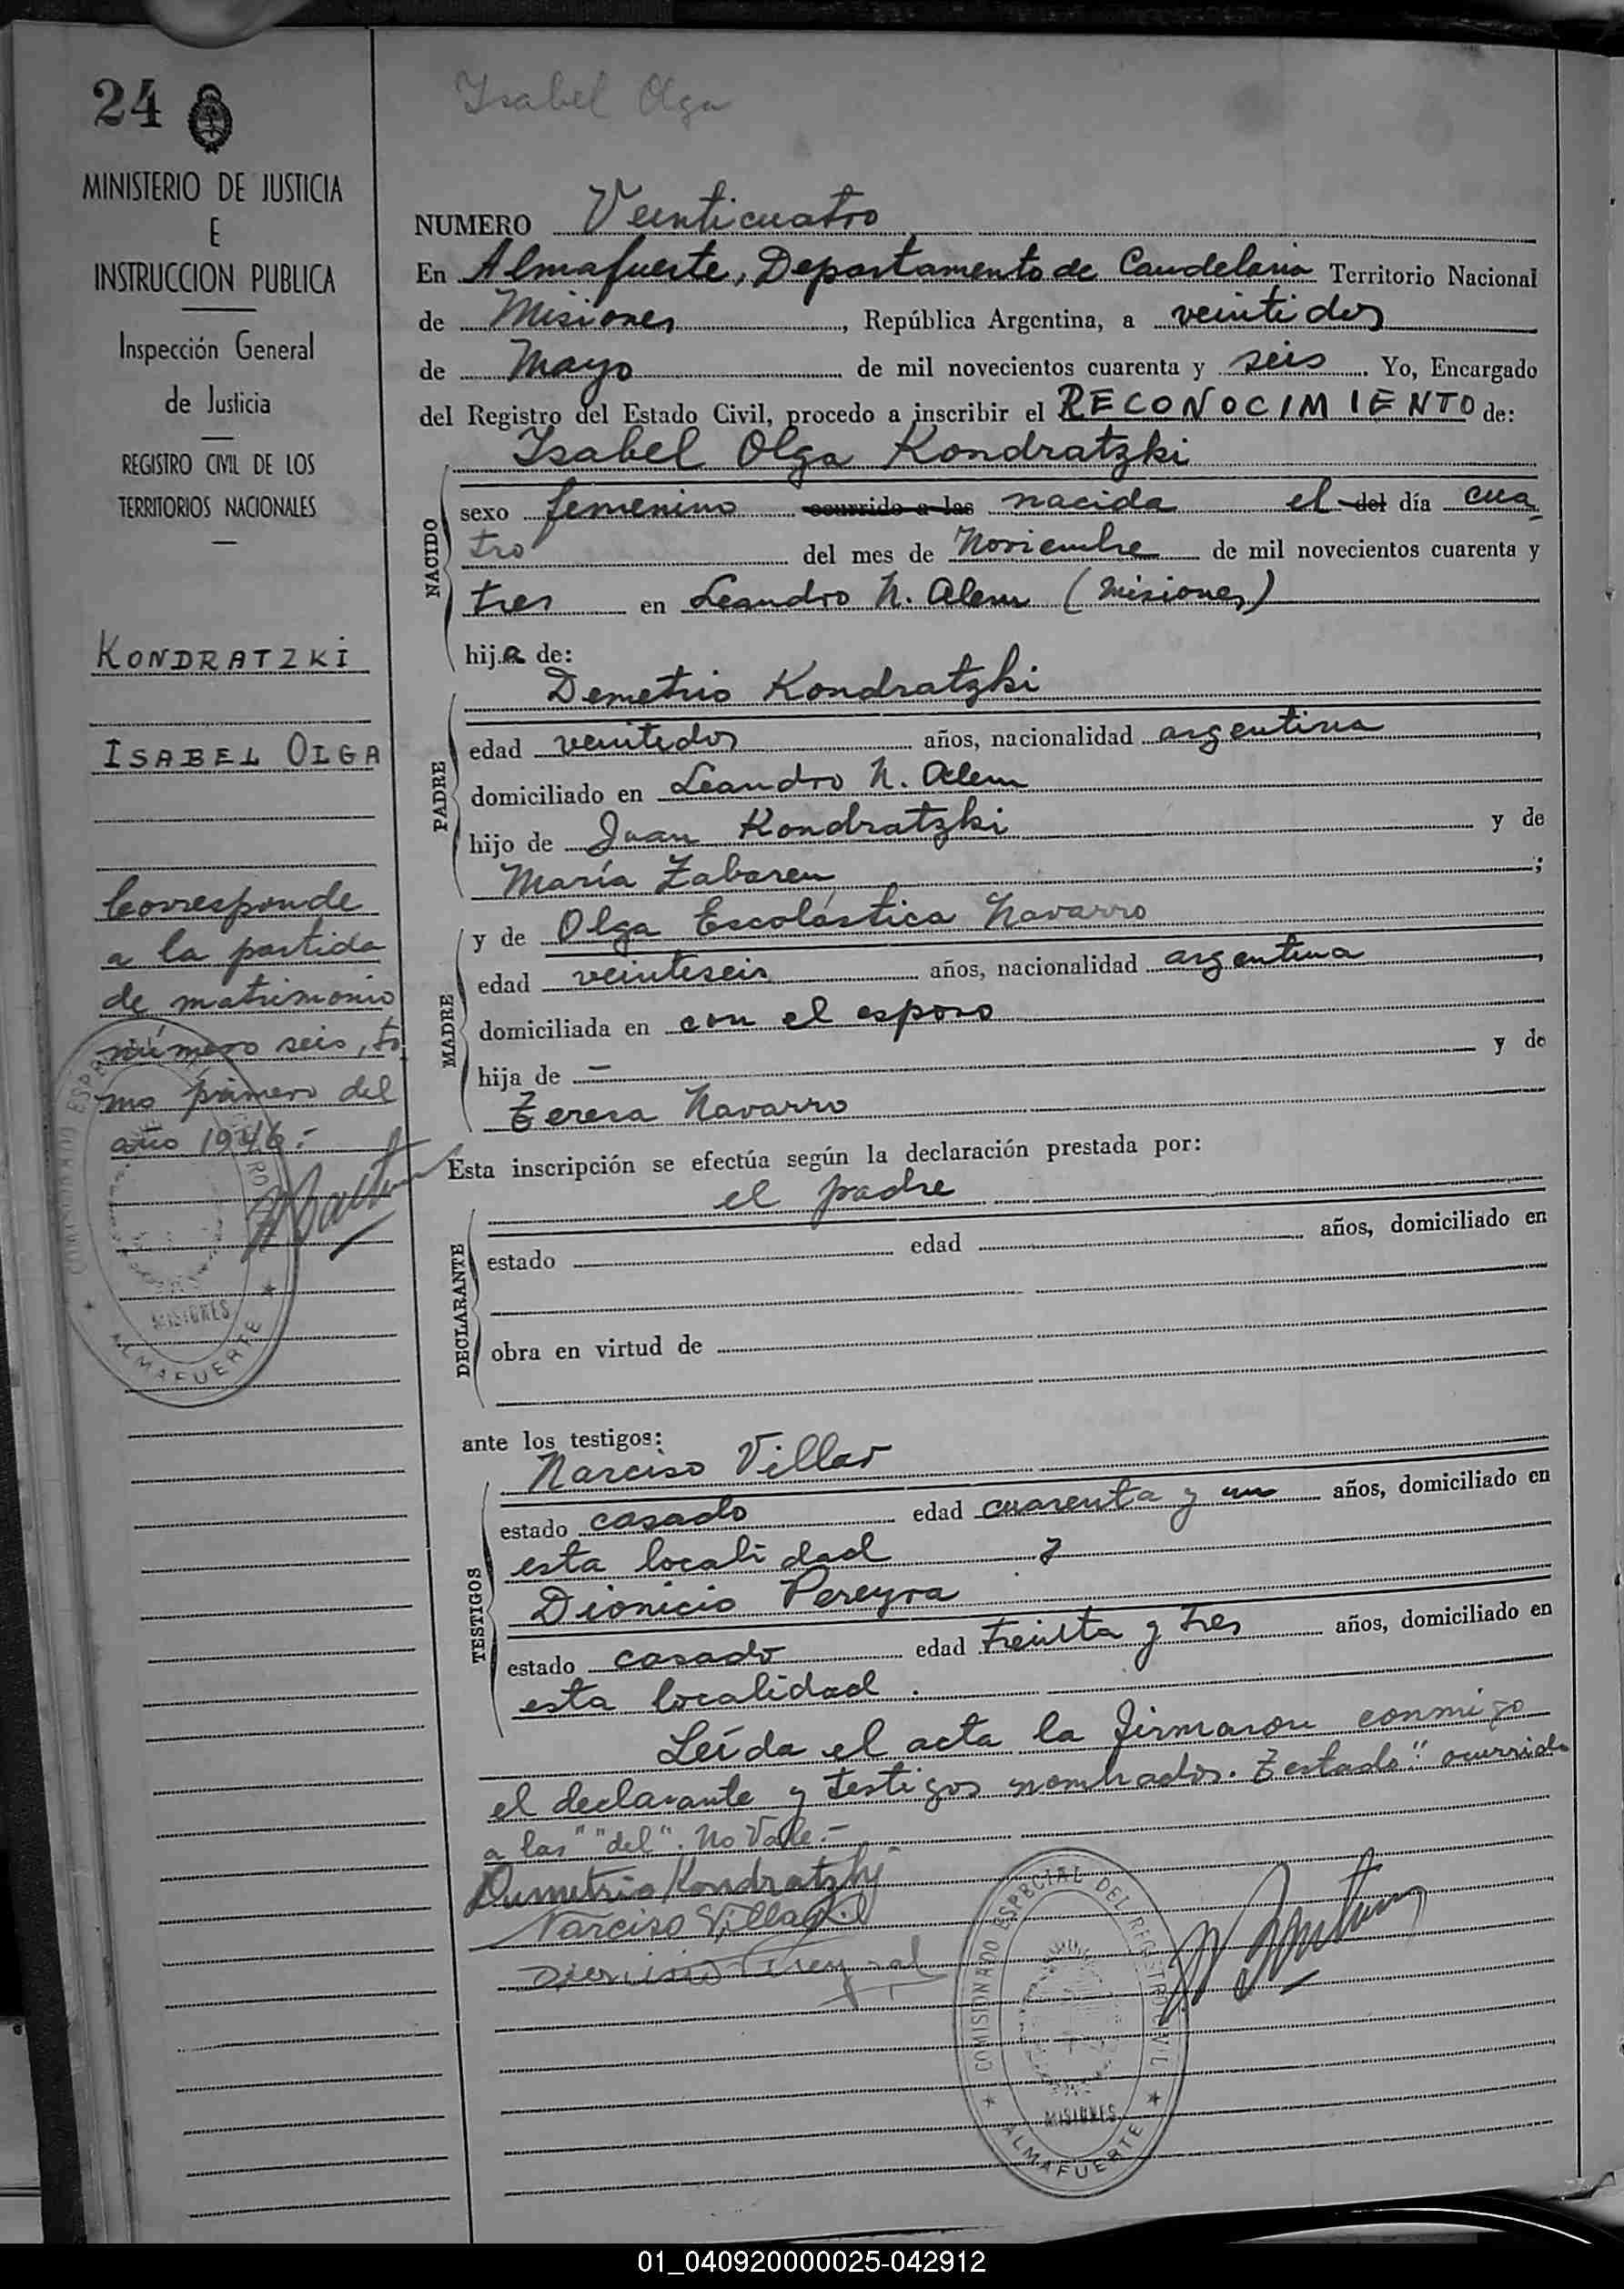 24
MINISTERIO DE JUSTICIA
E
INSTRUCCION PUBLICA
Inspección General
de Justicia
REGISTRO CIVIL DE LOS
TERRITORIOS NACIONALES
KONDRATZKI
ISABEL OLGA
Corresponde
a la partida
de matrimonio
número seis, to
mo primero del
año 1946.-
MISIONES
ALMAFUERTE
Isabel Olga
NUMERO Veinticuatro
En Almafuerte, Departamento de Candelaria Territorio Nacional
de Misiones, República Argentina, a veintidos
de Mayo de mil novecientos cuarenta y seis. Yo, Encargado
del Registro del Estado Civil, procedo a inscribir el RECONOCIMIENTO de:
Isabel Olga Kondratzki
NACIDO
sexo femenino ocurrido a las nacida el del día cua
tro del mes de Noviembre de mil novecientos cuarenta y
tres en Leandro N. Alem (Misiones)
hija de:
Demetrio Kondratzki
PADRE
edad veintidos años, nacionalidad argentina,
domiciliado en Leandro N. Alem
hijo de Juan Kondratzki y de
María Zabaren;
y de Olga Escolástica Navarro
MADRE
edad veinteseis años, nacionalidad argentina,
domiciliada en con el esposo
hija de — y de
Teresa Navarro
Esta inscripción se efectúa según la declaración prestada por:
el padre
DECLARANTE
estado edad años, domiciliado en
obra en virtud de
ante los testigos:
Narciso Villar
TESTIGOS
estado casado edad cuarenta y un años, domiciliado en
esta localidad y
Dionicio Pereyra
estado casado edad treinta y tres años, domiciliado en
esta localidad.
Leída el acta la firmaron conmigo
el declarante y testigos nombrados. Testado: "ocurrido
a las" "del". No Vale.-
Dumetrio Kondratzki
Narciso Villar
COMISIONADO ESPECIAL DEL REGISTRO CIVIL
MISIONES
ALMAFUERTE
01_040920000025-042912